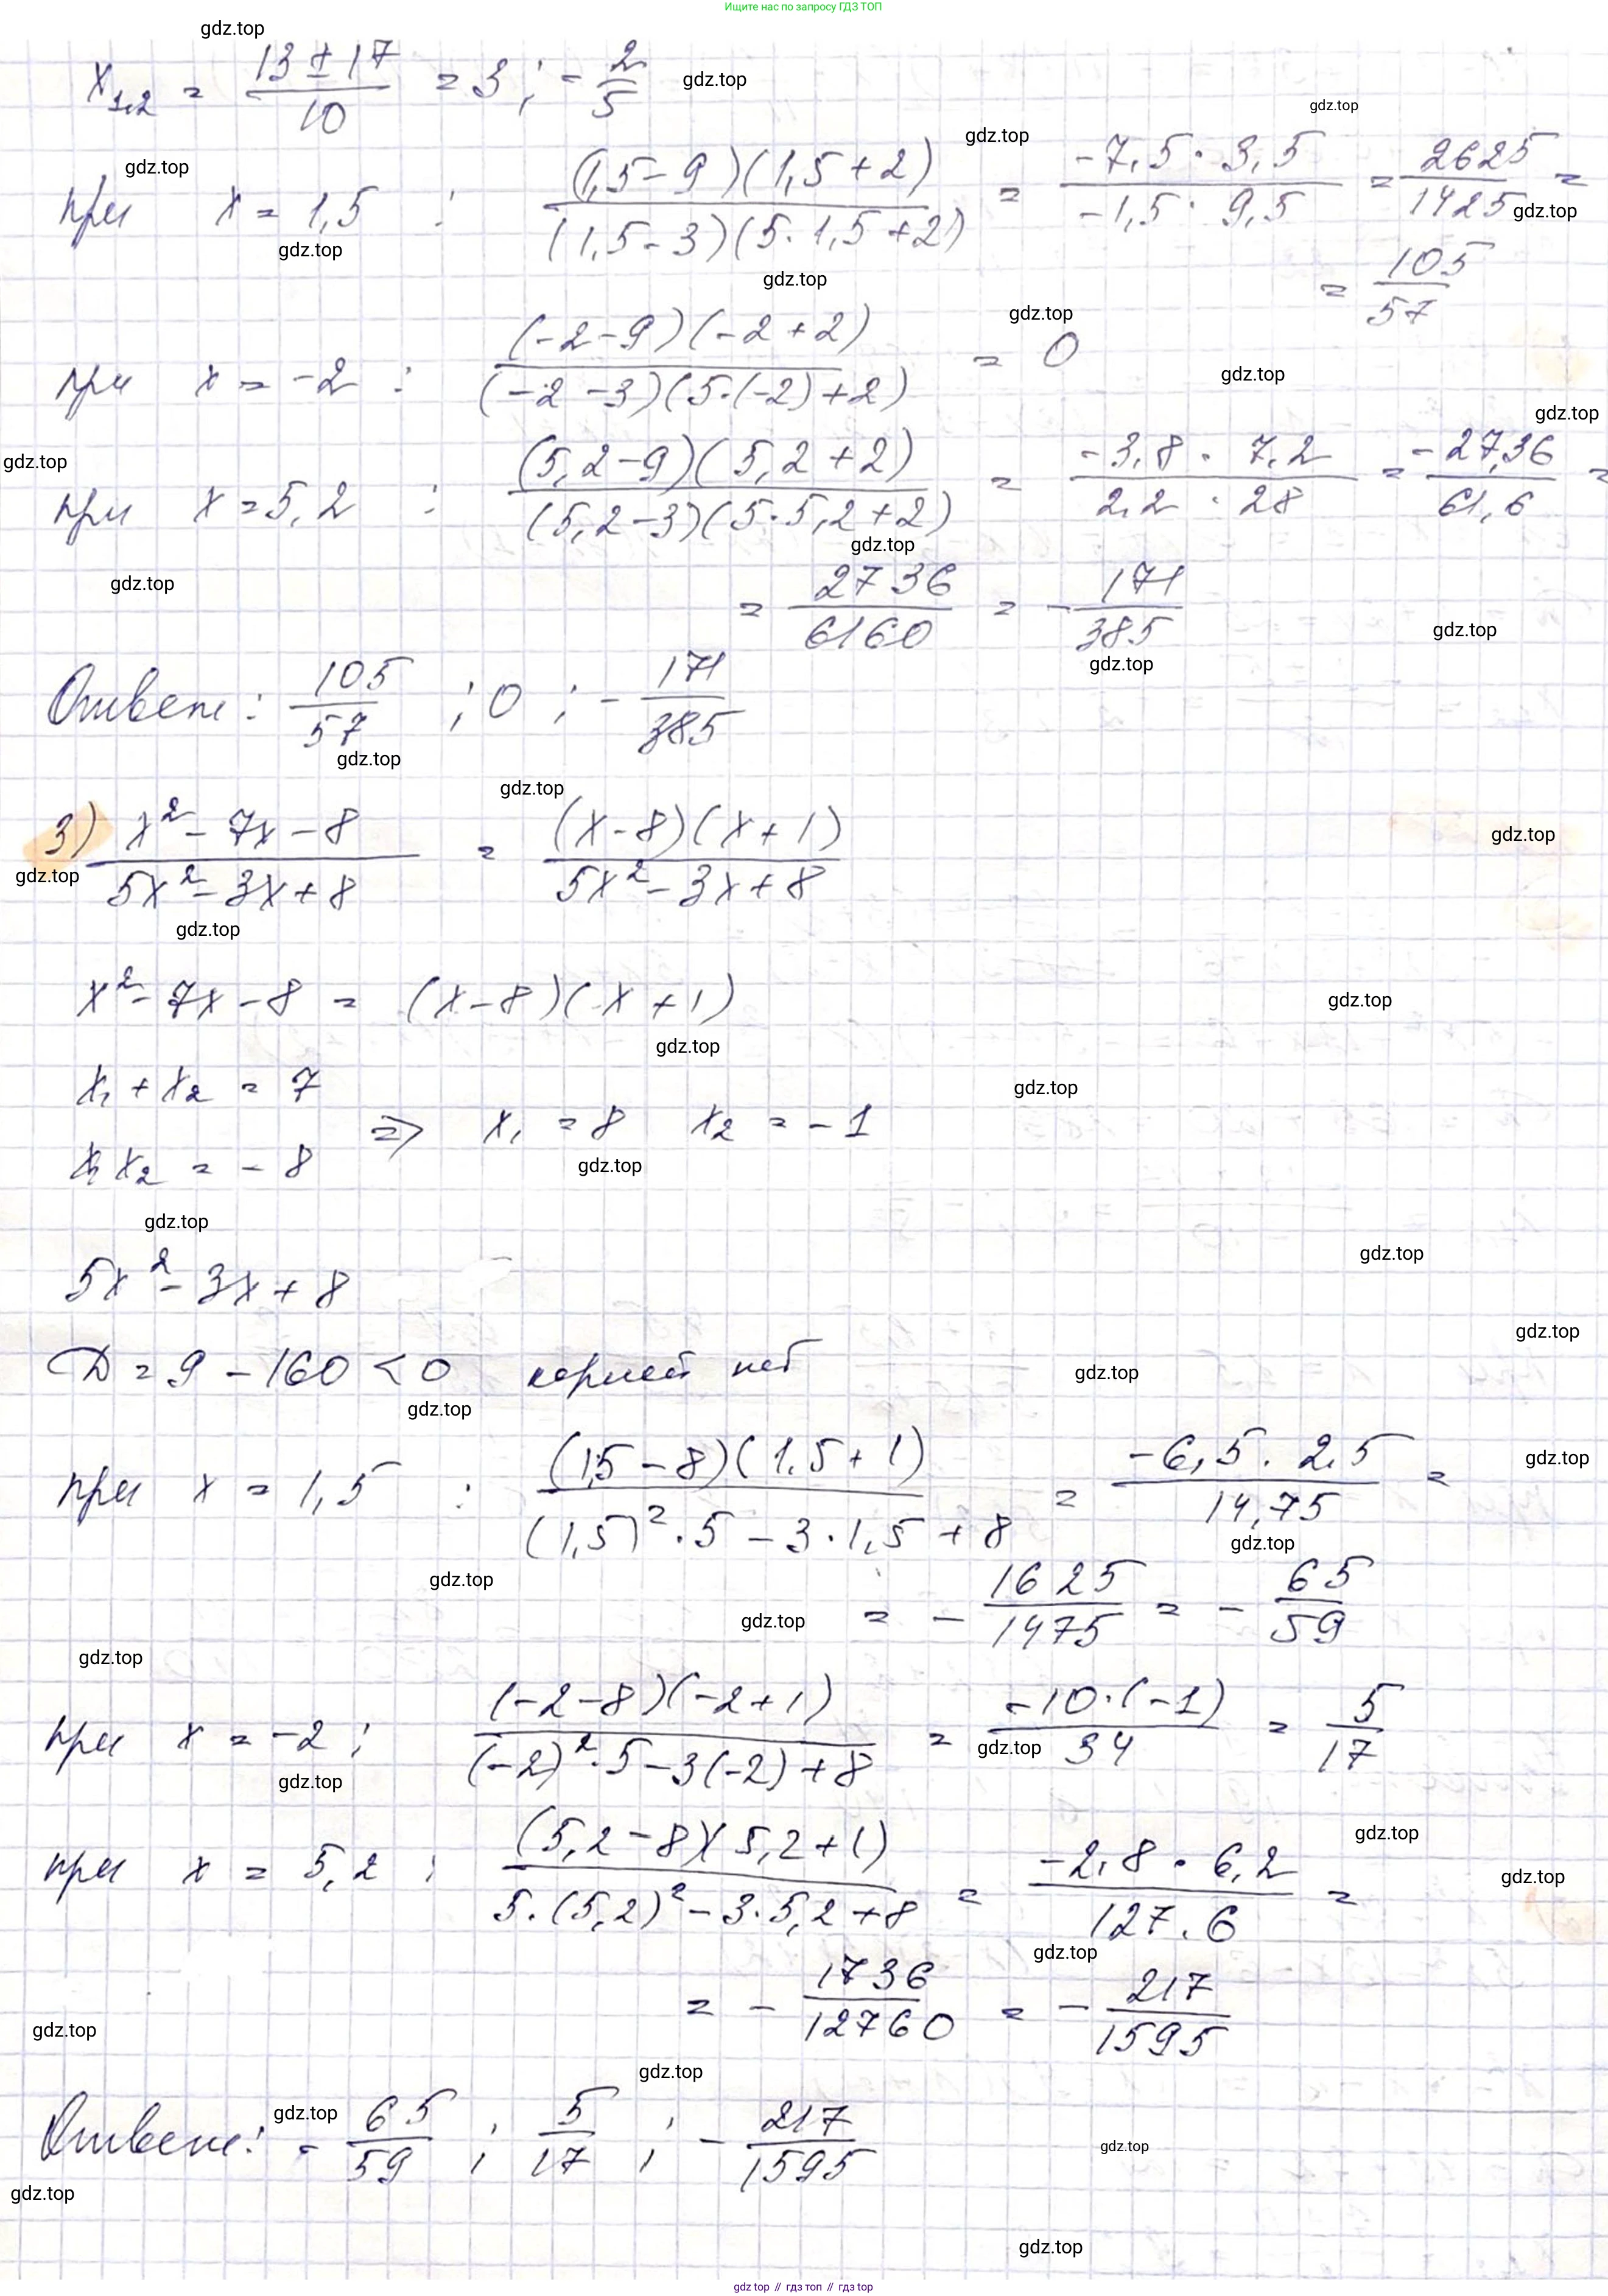 Ищите нас по запросу ГДЗ ТОП
gdz.top
x₁,₂ = (13 ± 17)/10 = 3 ; - 2/5
gdz.top
gdz.top
gdz.top
gdz.top
при x = 1,5 : ((1,5 - 9)(1,5 + 2))/((1,5 - 3)(5·1,5 + 2)) = (-7,5 · 3,5)/(-1,5 · 9,5) = 2625/1425 =
gdz.top
gdz.top
gdz.top
= 105/57
gdz.top
при x = -2 : ((-2-9)(-2+2))/((-2-3)(5·(-2)+2)) = 0
gdz.top
gdz.top
gdz.top
при x = 5,2 : ((5,2-9)(5,2+2))/((5,2-3)(5·5,2+2)) = (-3,8 · 7,2)/(2,2 · 28) = -27,36/61,6 =
gdz.top
gdz.top
= 2736/6160 = - 171/385
gdz.top
gdz.top
Ответ: 105/57 ; 0 ; - 171/385
gdz.top
gdz.top
3) (x² - 7x - 8)/(5x² - 3x + 8) = ((x - 8)(x + 1))/(5x² - 3x + 8)
gdz.top
gdz.top
gdz.top
x² - 7x - 8 = (x - 8)(x + 1)
gdz.top
gdz.top
x₁ + x₂ = 7
gdz.top
=> x₁ = 8 x₂ = -1
x₁ x₂ = - 8
gdz.top
gdz.top
gdz.top
5x² - 3x + 8
gdz.top
D = 9 - 160 < 0 корней нет
gdz.top
gdz.top
gdz.top
при x = 1,5 : ((1,5 - 8)(1,5 + 1))/((1,5)²·5 - 3·1,5 + 8) = (-6,5 · 2,5)/14,75 =
gdz.top
gdz.top
= - 1625/1475 = - 65/59
gdz.top
gdz.top
при x = -2 ; ((-2-8)(-2+1))/((-2)²·5 - 3(-2) + 8) = (-10·(-1))/34 = 5/17
gdz.top
gdz.top
gdz.top
при x = 5,2 ; ((5,2-8)(5,2+1))/(5·(5,2)² - 3·5,2 + 8) = (-2,8 · 6,2)/127.6 =
gdz.top
gdz.top
= - 1736/12760 = - 217/1595
gdz.top
gdz.top
gdz.top
Ответ: - 65/59 ; 5/17 ; - 217/1595
gdz.top
gdz.top
gdz.top
gdz top // гдз топ // gdz top